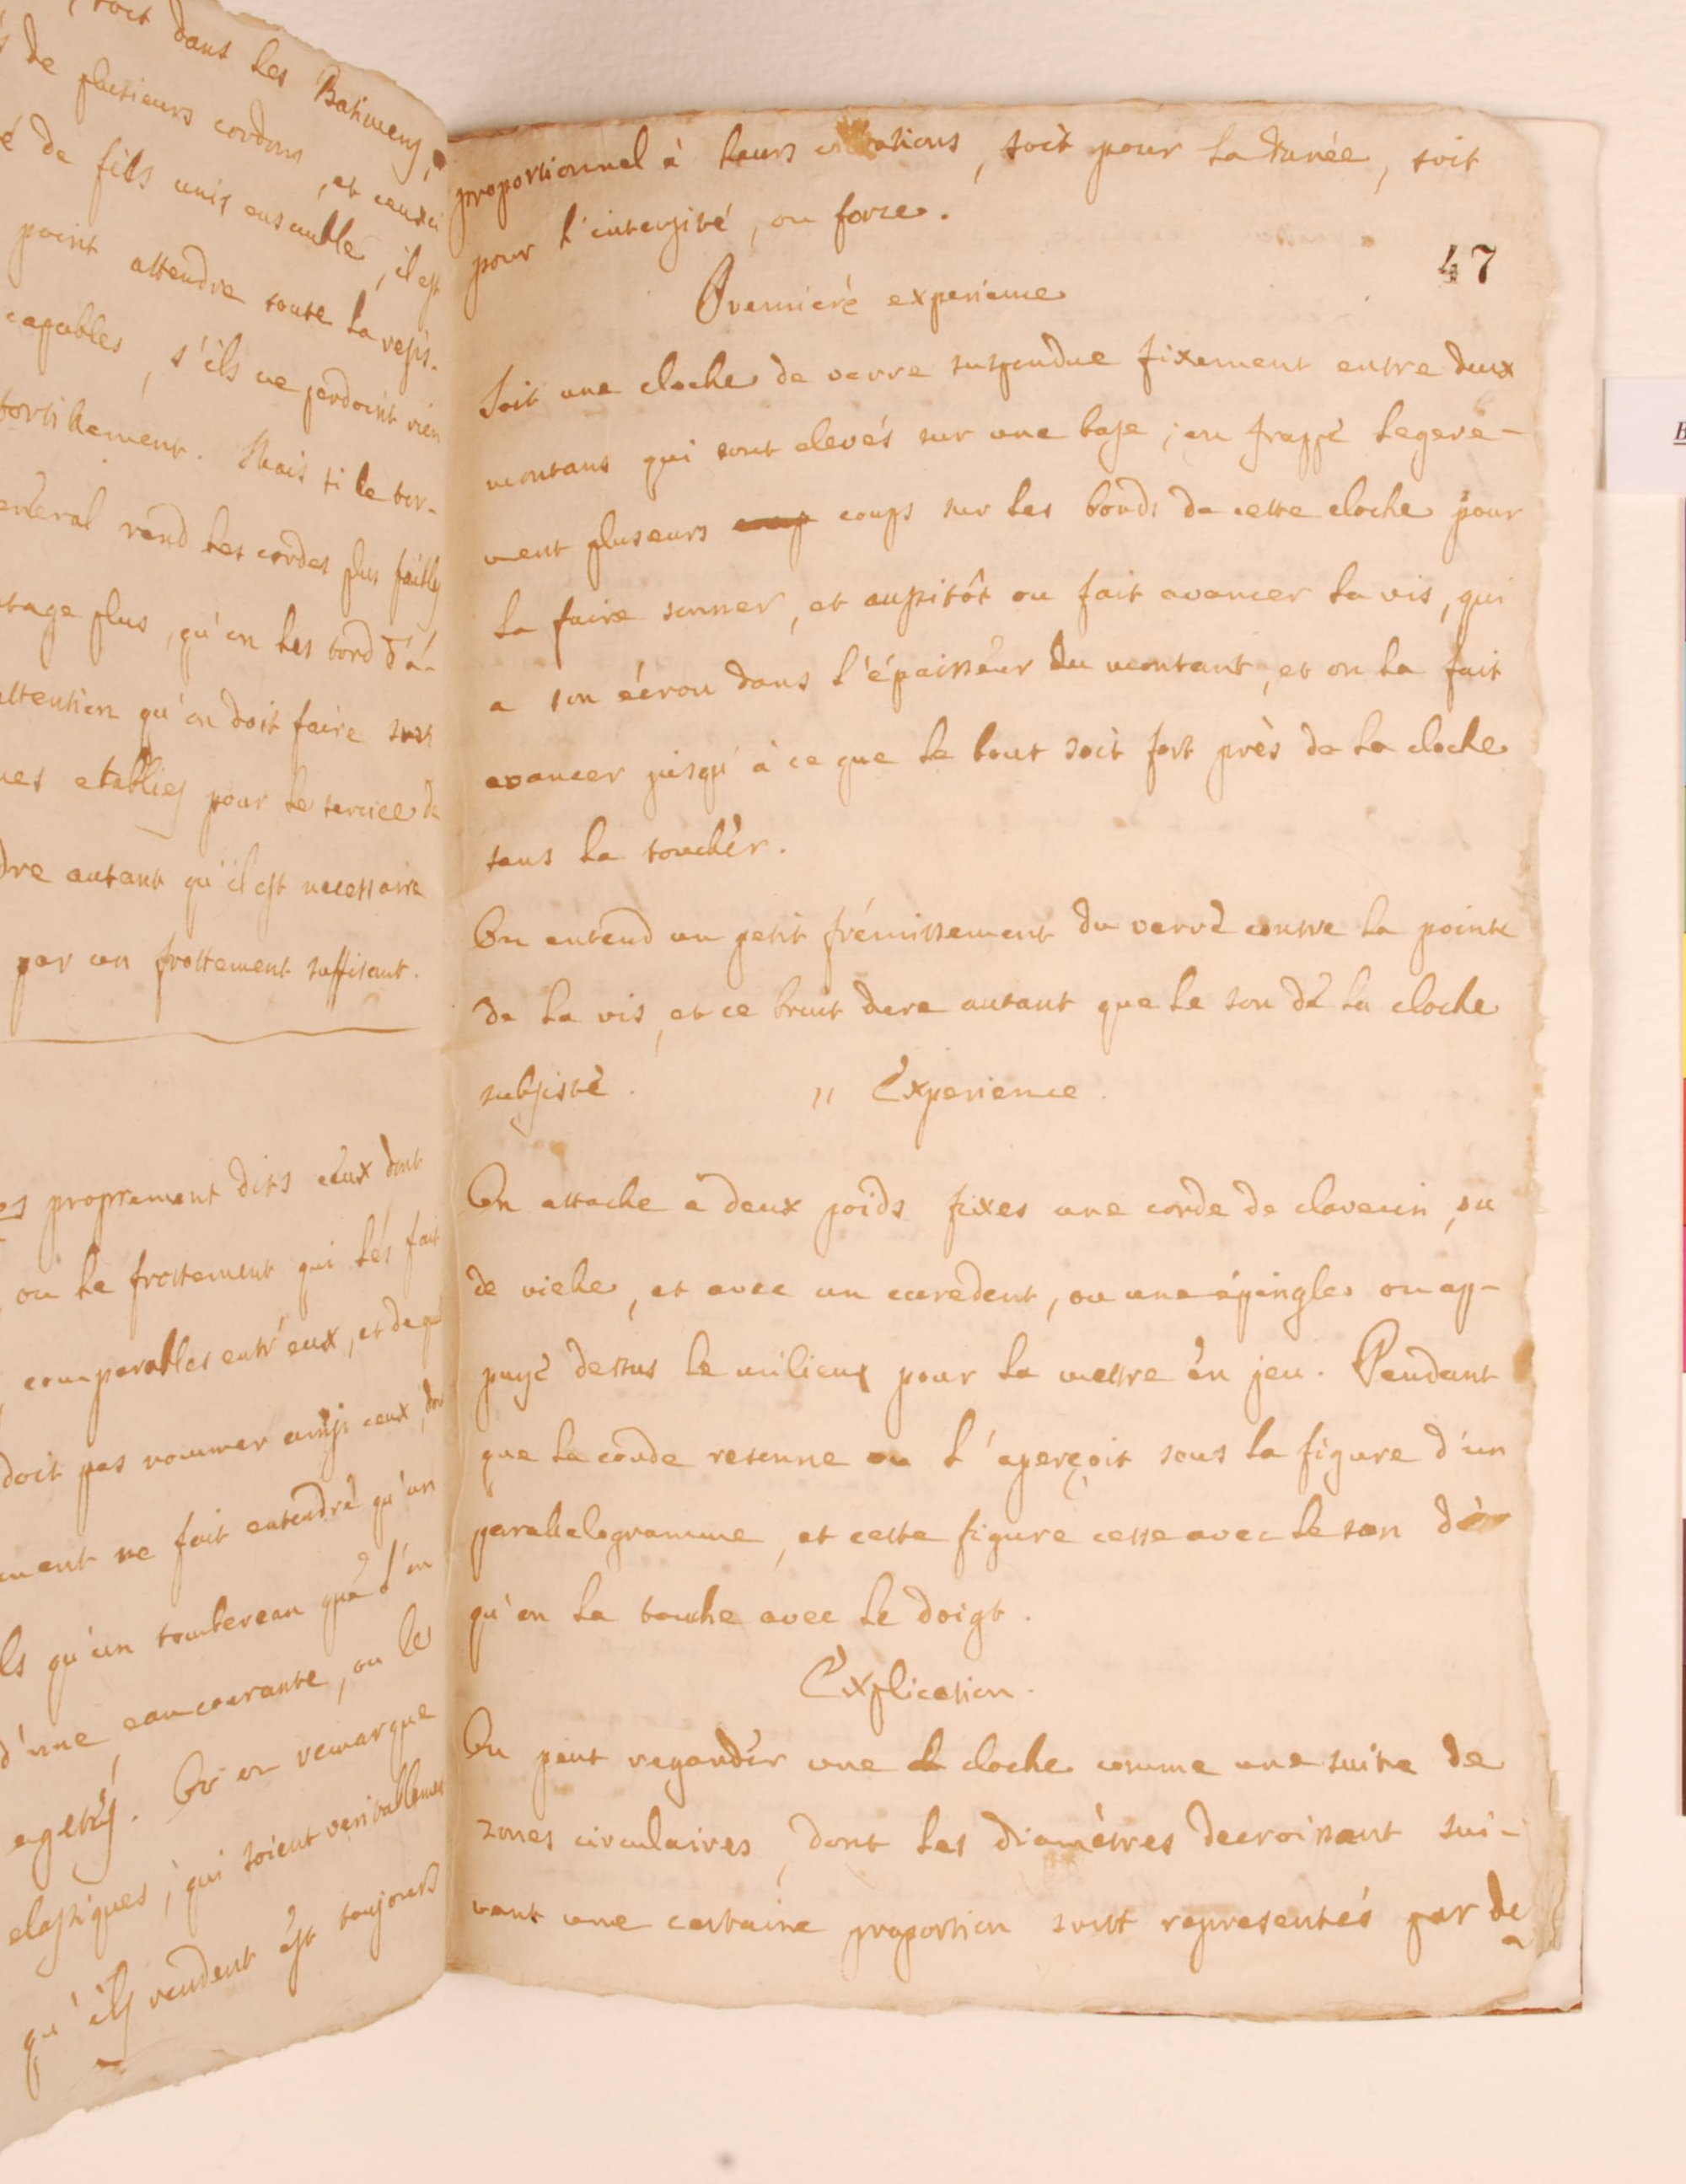 soit dans les Batimens,
de plusieurs cordons, et ceuxci
é de fils unis ensemble, il est
point attendre toute la resis-
capables, s'ils ne perdoint rien
tortillement. Mais si le tor-
eneral rend les cordes plus faibles
tage plus, qu'on les tord d'a-
attention qu'on doit faire sur
nes etablies pour le service de
dre autant qu'il est necessaire
par un frottement suffisant.
es proprement dits ceux dont
ou le frottement qui les fait
comparables entr'eux, et de qu
doit pas nommer ainsi ceux, don
ment ne fait entendre qu'un
ls qu'un tombereau que l'on
d'une eau courante, ou les
agetés. Or on remarque
elastiques, qui soient veritablemen
qu'ils rendent est toujours
proportionnel à leurs ations, soit pour la durée, soit
pour l'intensité, ou force.
47
Premiere experience
Soit une cloche de verre suspendue fixement entre deux
montans qui sont elevés sur une base; on frappe legere-
ment pluseurs coup coups sur les bords de cette cloche pour
la faire sonner, et aussitôt on fait avancer la vis, qui
a son écrou dans l'épaisseur du montant, et on la fait
avancer jusqu'à ce que le bout soit fort près de la cloche
sans la toucher.
On entend un petit frémissement du verre contre la pointe
de la vis, et ce bruit dure autant que le son de la cloche
subsiste. " Experience.
On attache à deux poids fixes une corde de clavecin, ou
de vielle, et avec un curedent, ou une épingle on ap-
puye dessus le milieu pour la mettre en jeu. Pendant
que la corde resonne on l'aperçoit sous la figure d'un
parallelogramme, et cette figure cesse avec le son dès
qu'on la touche avec le doigt.
Explication.
On peut regarder une cloche comme une suite de
zones circulaires, dont les diamètres decroissant sui-
vant une certaine proportion sont representés par de